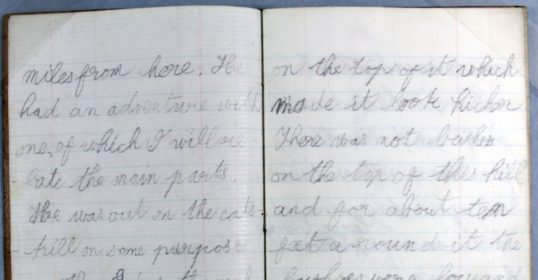 miles from here. He
had an adventure with
one, of which I will re-
late the main parts.
He was out on the
hill on some purpose
on the top of it which
made it look
There was not bushes
on the top of this hill
and for about ten
feet around it the
bushes were